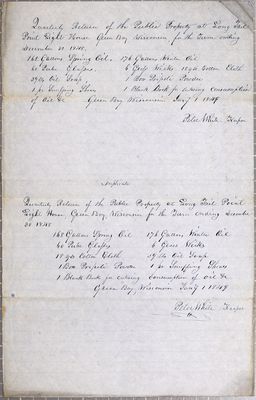 Quarterly Return of the Public Property at Long Tail
Point Light House Green Bay, Wisconsin for the Term ending
December 31 1848.
165 Gallons Spring Oil, 176 Gallons Winter Oil
60 Tube Glasses, 6 Gross Wicks 18 yds Cotton Cloth
29 lb Oil Soap, 1 Box Tripoli Powder
1 pr Snuffing Shears 1 Blank Book for entering Consumption
of Oil &c Green Bay Wisconsin Jany 1 1849
Peter White Keeper
Duplicate
Quarterly Return of the Public Property at Long Tail Point
Light House, Green Bay, Wisconsin for the Term ending December
31 1848
165 Gallons Spring Oil 176 Gallons Winter Oil
60 Tube Glasses 6 Gross Wicks
18 yds Cotton Cloth 29 lb Oil Soap
1 Box Tripoli Powder 1 pr Snuffing Shears
1 Blank Book for entering Consumption of Oil &c
Green Bay, Wisconsin Jany 1 1849
Peter White Keeper